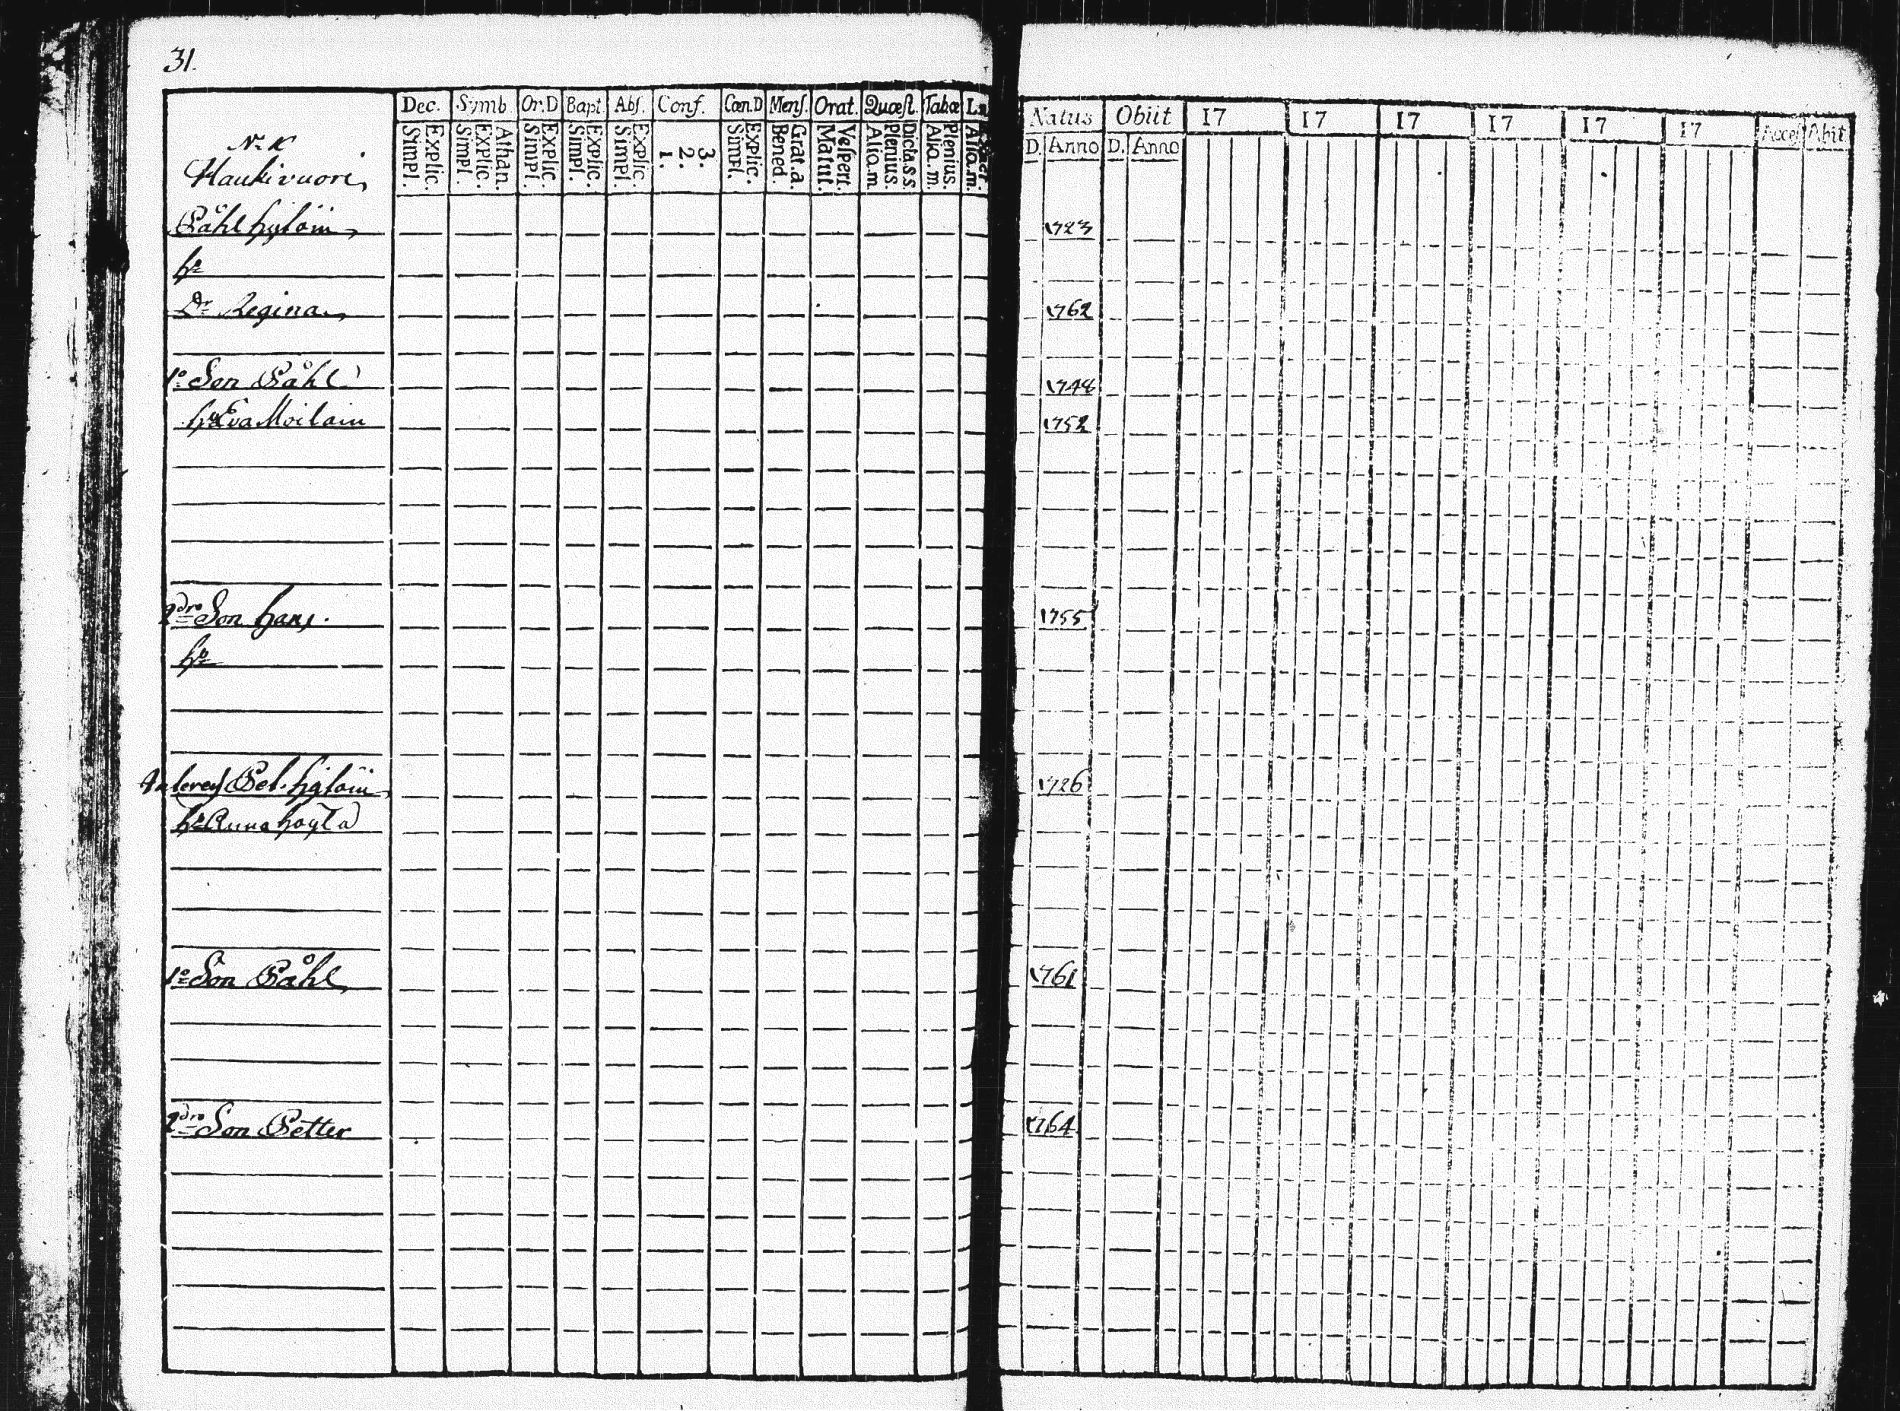 31.
Dec. Symb Or.D Bapt Abs. Conf. Cœn.D Mens. Orat. Quæst. Tabæ
Simpl. Explic. Simpl. Explic. Athan. Simpl. Explic. Simpl. Explic. Simpl. Explic. 1. 2. 3. Simpl. Explic. Bened. Grat.a. Matut. Vespert. Alia.m Plenius Dicta.s.s. Alia.m. Plenius. Alia.m.
Natus Obiit 17 17 17 17 17 17 Acces Abit
D. Anno D. Anno
Haukivuori
Påhl 1723
hr
Dr Regina 1762
1o Son Påhl 1748
hr Eva Moilain 1752
2dro Son Hans 1755
hr
Pet. 1726
hr Anna
1o Son Påhl 1761
2dro Son Petter 1764